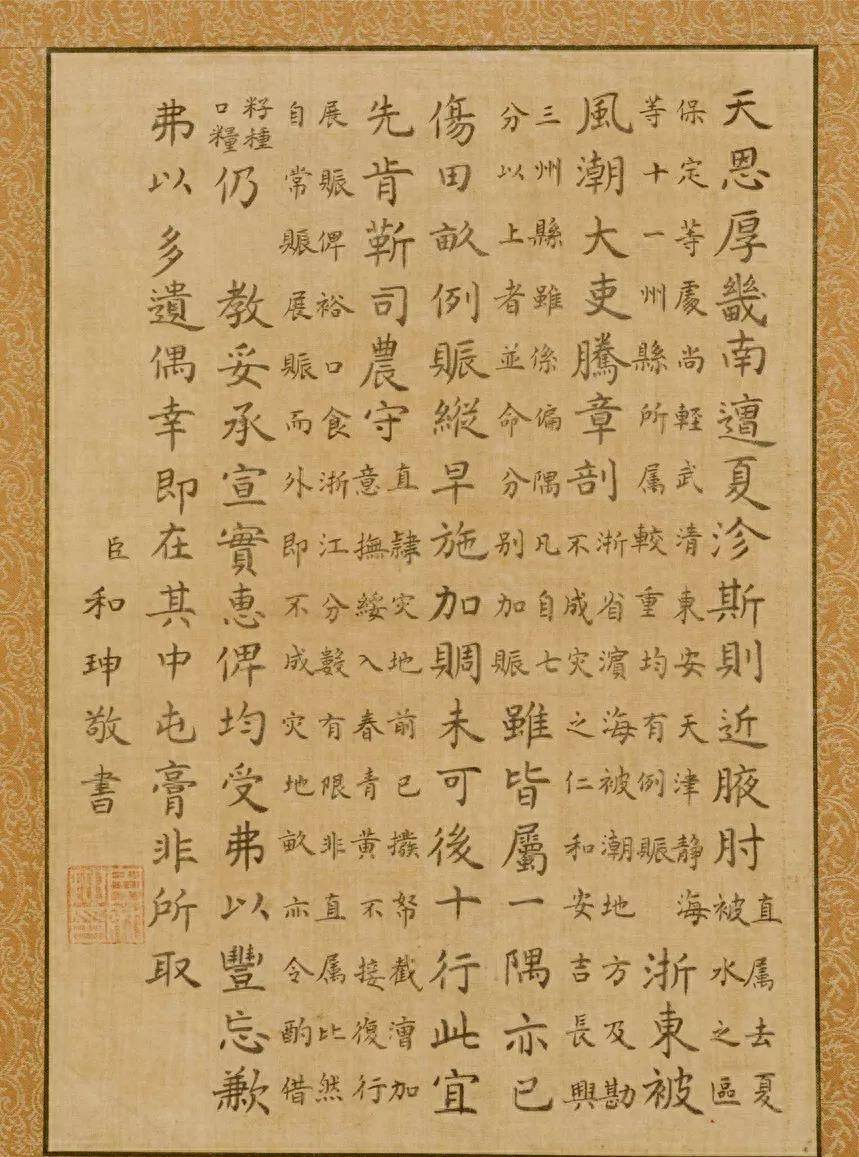 天恩厚畿南邅夏沴斯則近腋肘
直属去夏
被水之區
保定等處尚輕武清東安天津靜海
等十一州縣所属較重均有例賑
浙東被
風潮大吏騰章剖
浙省濱海被潮地方及勘
不成灾之仁和安吉長興
三州縣雖係偏隅凡自七
分以上者並命分别加賑
雖皆屬一隅亦已
傷田畝例賑縱早施加賙未可後十行此宜
先肯蘄司農守
直隸灾地前已撥帑截漕加
意撫綏入春青黄不接復行
展賑俾裕口食浙江分數有限非直属比然
自常賑展賑而外即不成灾地畝亦令酌借
籽種
口糧
仍 教妥承宣實惠俾均受弗以豐忘歉
弗以多遺偶幸即在其中屯膏非所取
臣和珅敬書